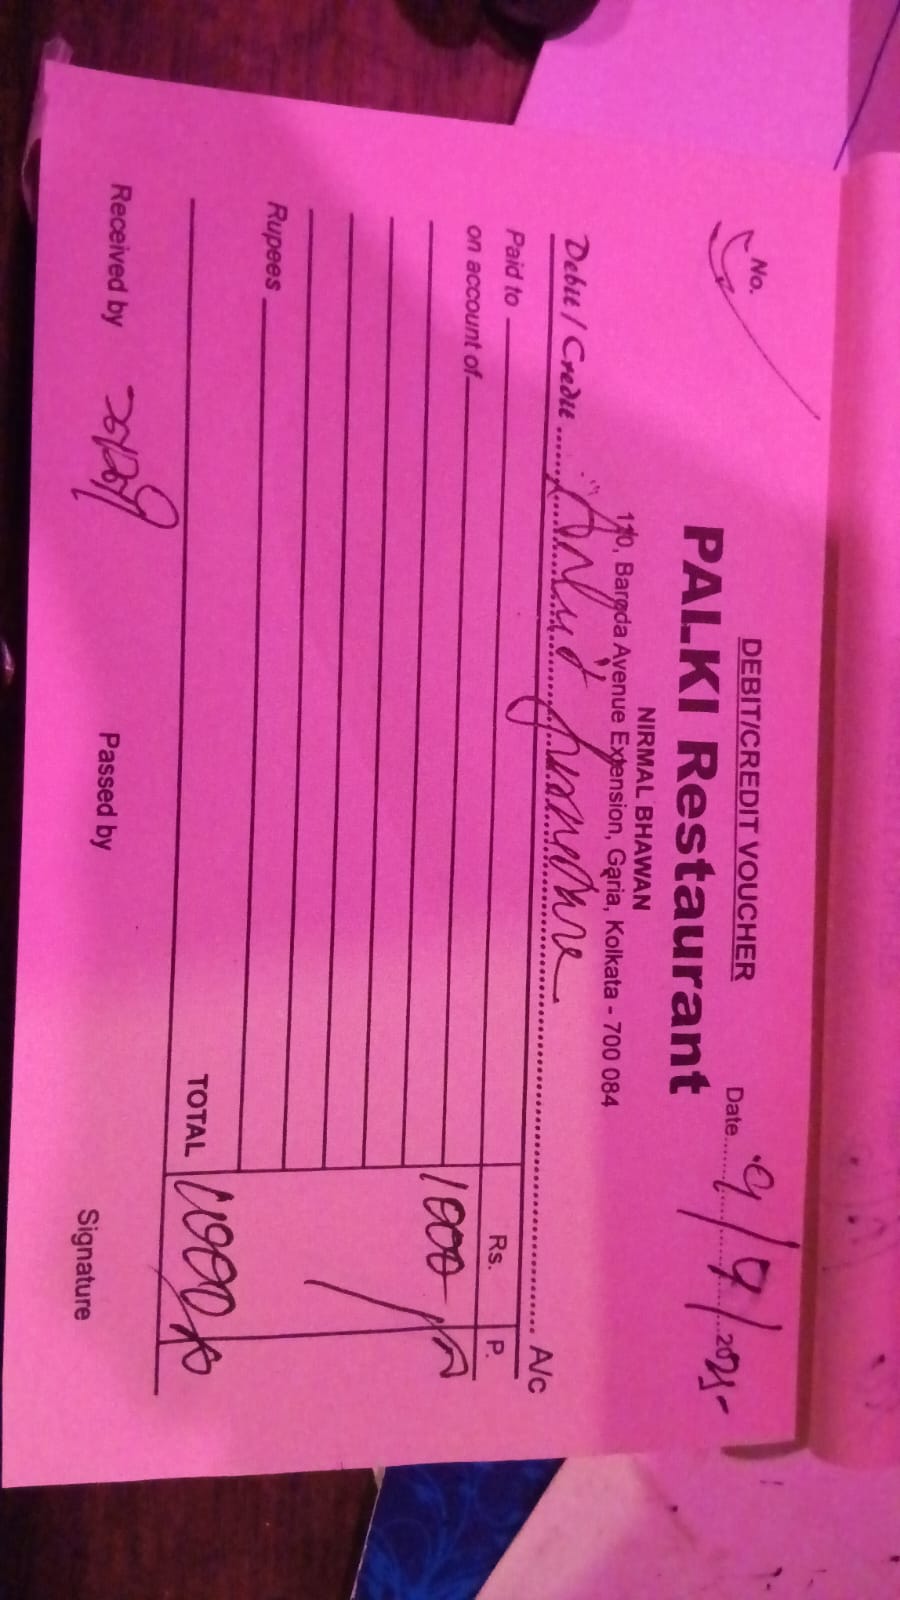 DEBIT/CREDIT VOUCHER
No. Date 9/9/2025
PALKI Restaurant
NIRMAL BHAWAN
110, Baroda Avenue Extension, Garia, Kolkata - 700 084
Debit / Credit A/c
Paid to Rs. P.
on account of 1000/
Rupees
TOTAL 1000/
Received by Passed by Signature